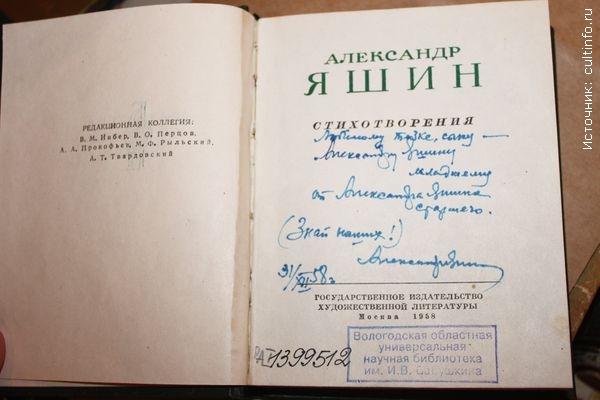 РЕДАКЦИОННАЯ КОЛЛЕГИЯ:
В. М. Инбер, В. О. Перцов,
А. А. Прокофьев, М. Ф. Рыльский,
А. Т. Твардовский
АЛЕКСАНДР
ЯШИН
СТИХОТВОРЕНИЯ
Любимому тёзке, сыну —
Александру Яшину
младшему
от Александра Яшина
старшего.
(Знай наших!)
Александр Яшин
31/XII 58 г.
ГОСУДАРСТВЕННОЕ ИЗДАТЕЛЬСТВО
ХУДОЖЕСТВЕННОЙ ЛИТЕРАТУРЫ
Москва 1958
1399512
Вологодская областная
универсальная
научная библиотека
им. И.В. Бабушкина
Источник: cultinfo.ru